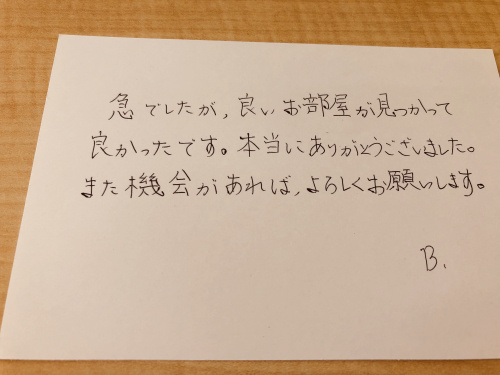 急でしたが，良いお部屋が見つかって
良かったです。本当にありがとうございました。
また機会があれば，よろしくお願いします。
B.